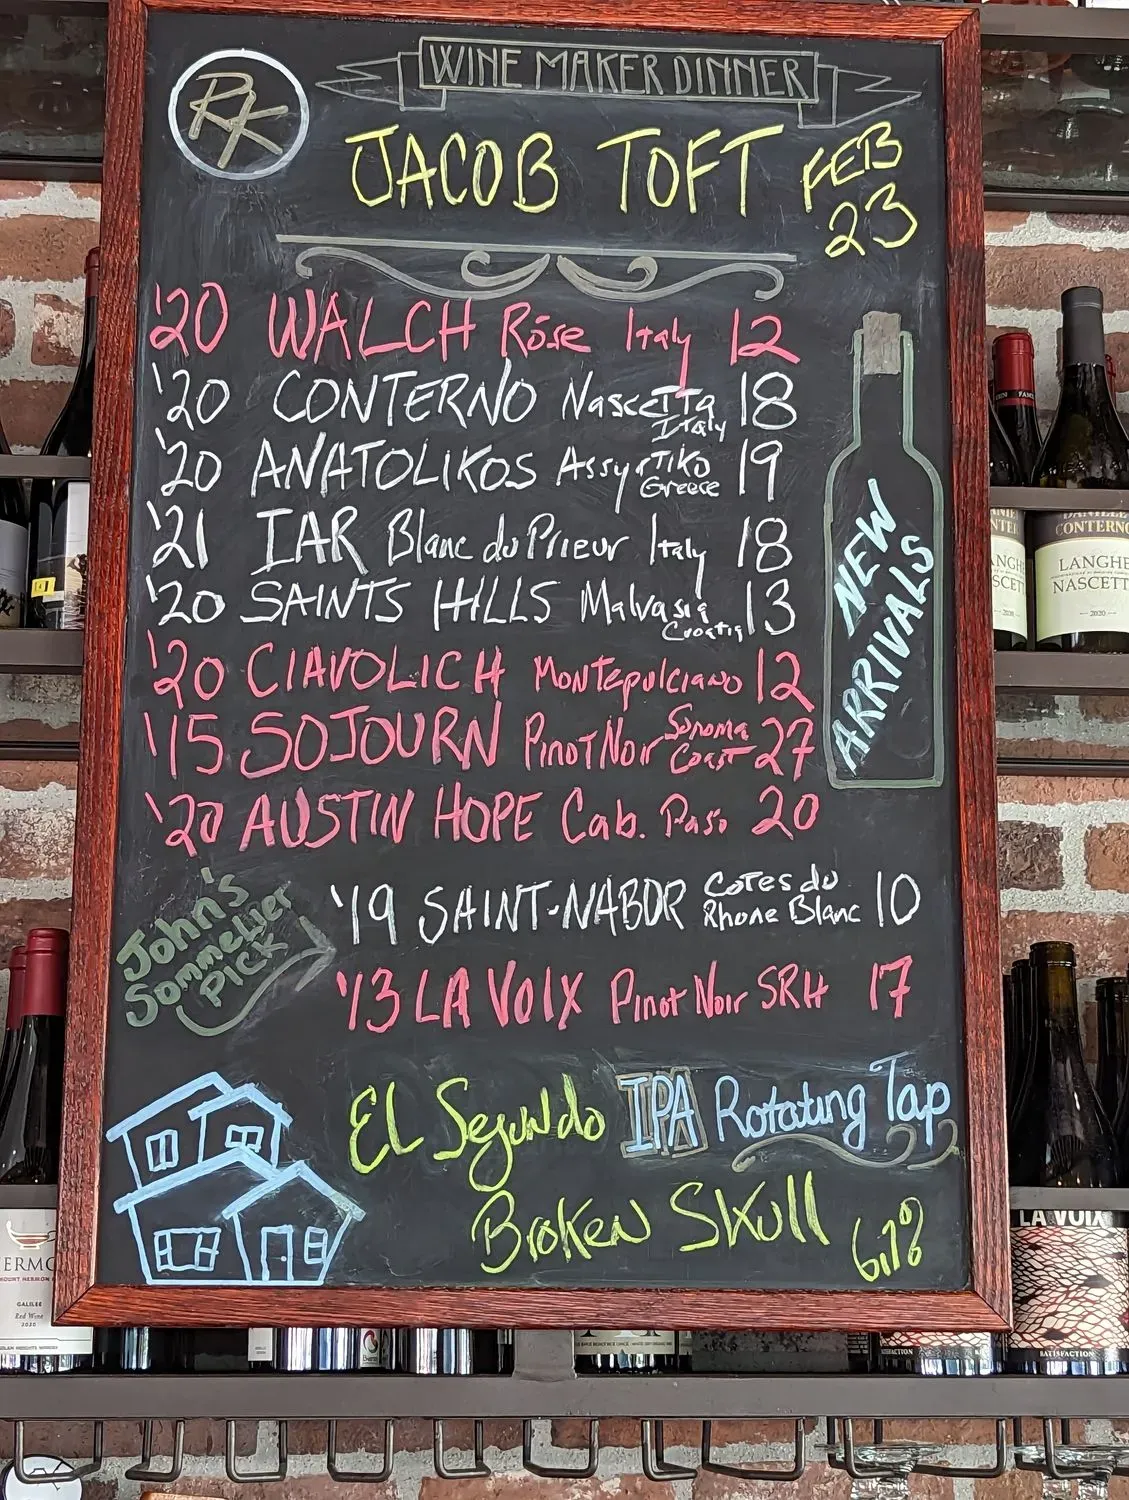 RK
WINE MAKER DINNER
JACOB TOFT FEB 23
'20 WALCH Róse Italy 12
'20 CONTERNO Nascetta Italy 18
'20 ANATOLIKOS Assyrtiko Greece 19
'21 IAR Blanc du Prieur Italy 18
'20 SAINTS HILLS Malvasia Croatia 13
'20 CIAVOLICH Montepulciano 12
'15 SOJOURN Pinot Noir Sonoma Coast 27
'20 AUSTIN HOPE Cab. Paso 20
NEW
ARRIVALS
John's
Sommelier
Pick
'19 SAINT-NABOR Cotes du Rhone Blanc 10
'13 LA VOIX Pinot Noir SRH 17
El Segundo IPA Rotating Tap
Broken Skull 6.7%
CONTERNO
LANGHE
NASCETT
2020
GALILEE
Red Wine
2020
LA VOIX
SATISFACTION